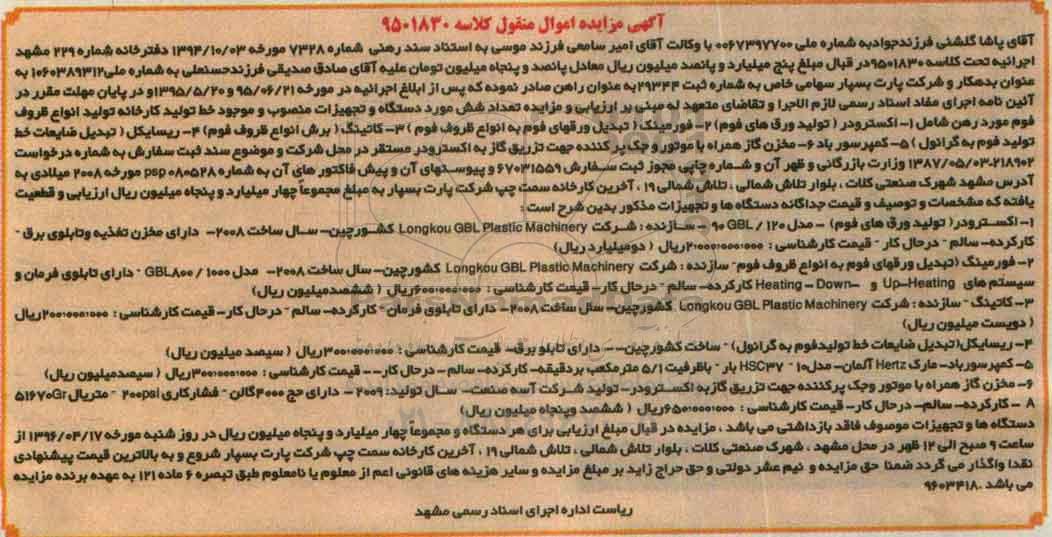 آگهی مزایده اموال منقول کلاسه ۹۵۰۱۸۳۰
آقای پاشا گلشنی فرزندجوادبه شماره ملی ۰۰۶۷۳۹۷۷۰۰ با وکالت آقای امیر سامعی فرزند موسی به استناد سند رهنی شماره ۷۳۲۸ مورخه ۱۳۹۴/۱۰/۰۳ دفترخانه شماره ۲۲۹ مشهد
اجرائیه تحت کلاسه ۹۵۰۱۸۳۰در قبال مبلغ پنج میلیارد و پانصد میلیون ریال معادل پانصد و پنجاه میلیون تومان علیه آقای صادق صدیقی فرزندحسنعلی به شماره ملی۱۰۶۰۳۸۹۳۱۲ به
عنوان بدهکار و شرکت پارت بسپار سهامی خاص به شماره ثبت ۲۹۳۴۴ به عنوان راهن صادر نموده که پس از ابلاغ اجرائیه در مورخه ۹۵/۰۶/۲۱ و ۱۳۹۵/۵/۲۰و در پایان مهلت مقرر در
آئین نامه اجرای مفاد اسناد رسمی لازم الاجرا و تقاضای متعهد له مبنی بر ارزیابی و مزایده تعداد شش مورد دستگاه و تجهیزات منصوب و موجود خط تولید کارخانه تولید انواع ظروف
فوم مورد رهن شامل ۱- اکسترودر ( تولید ورق های فوم) ۲- فورمینگ ( تبدیل ورقهای فوم به انواع ظروف فوم ) ۳- کاتینگ ( برش انواع ظروف فوم) ۴- ریسایکل ( تبدیل ضایعات خط
تولید فوم به گرانول ) ۵- کمپرسور باد ۶- مخزن گاز همراه با موتور و جک پر کننده جهت تزریق گاز به اکسترودر مستقر در محل شرکت و موضوع سند ثبت سفارش به شماره درخواست
۱۳۸۷/۰۵/۰۳-۲۱۸۹۰۲ وزارت بازرگانی و قهر آن و شماره چاپی مجوز ثبت سفارش ۶۷۰۳۱۵۵۹ و پیوستهای آن و پیش فاکتور های آن به شماره psp ۰۸۰۵۲۸ مورخه ۲۰۰۸ میلادی به
آدرس مشهد شهرک صنعتی کلات ، بلوار تلاش شمالی ، تلاش شمالی ۱۹ ، آخرین کارخانه سمت چپ شرکت پارت بسپار به مبلغ مجموعاً چهار میلیارد و پنجاه میلیون ریال ارزیابی و قطعیت
یافته که مشخصات و توصیف و قیمت جداگانه دستگاه ها و تجهیزات مذکور بدین شرح است :
۱- اکسترودر( تولید ورق های فوم) - مدل ۱۲۰ / GBL ۹۰ - سازنده : شرکت Longkou GBL Plastic Machinery کشورچین- سال ساخت ۲۰۰۸- دارای مخزن تغذیه وتابلوی برق -
کارکرده- سالم - درحال کار - قیمت کارشناسی : ۲۰۰۰۰۰۰۰۰۰ریال ( دومیلیارد ریال)
۲- فورمینگ (تبدیل ورقهای فوم به انواع ظروف فوم- سازنده : شرکت Longkou GBL Plastic Machinery کشورچین- سال ساخت ۲۰۰۸- مدل ۱۰۰۰ / GBL۸۰۰ - دارای تابلوی فرمان و
سیستم های Up-Heating و Heating - Down- کارکرده- سالم - درحال کار- قیمت کارشناسی : ۶۰۰۰۰۰۰۰۰ریال ( ششصدمیلیون ریال)
۳- کاتینگ - سازنده : شرکت Longkou GBL Plastic Machinery کشورچین- سال ساخت ۲۰۰۸- دارای تابلوی فرمان- کارکرده- سالم - درحال کار- قیمت کارشناسی : ۲۰۰۰۰۰۰۰۰ریال
( دویست میلیون ریال)
۴- ریسایکل(تبدیل ضایعات خط تولیدفوم به گرانول) - ساخت کشورچین-- دارای تابلو برق- قیمت کارشناسی : ۳۰۰۰۰۰۰۰۰ریال ( سیصد میلیون ریال)
۵- کمپرسورباد- مارک Hertz آلمان- مدل۱۰ - HSC۳۷ بار - باظرفیت ۵/۱ مترمکعب بردقیقه- کارکرده- سالم - درحال کار-- قیمت کارشناسی : ۳۰۰۰۰۰۰۰۰ریال ( سیصدمیلیون ریال)
۶- مخزن گاز همراه با موتور وجک پرکننده جهت تزریق گازبه اکسترودر- تولید شرکت آسه صنعت- سال تولید: ۲۰۰۹ - دارای حجم ۴۰۰۰گالن - فشارکاری ۲۰۰psi - متریال ۵۱۶۷۰Gr
A - کارکرده- سالم- درحال کار- قیمت کارشناسی : ۶۵۰۰۰۰۰۰۰ریال ( ششصد وپنجاه میلیون ریال)
دستگاه ها و تجهیزات موصوف فاقد بازداشتی می باشد ، مزایده در قبال مبلغ ارزیابی برای هر دستگاه و مجموعاً چهار میلیارد و پنجاه میلیون ریال در روز شنبه مورخه ۱۳۹۶/۰۴/۱۷ از
ساعت ۹ صبح الی ۱۲ ظهر در محل مشهد ، شهرک صنعتی کلات ، بلوار تلاش شمالی ، تلاش شمالی ۱۹ ، آخرین کارخانه سمت چپ شرکت پارت بسپار شروع و به بالاترین قیمت پیشنهادی
نقدا واگذار می گردد ضمنا حق مزایده و نیم عشر دولتی و حق حراج زاید بر مبلغ مزایده و سایر هزینه های قانونی اعم از معلوم یا نامعلوم طبق تبصره ۶ ماده ۱۲۱ به عهده برنده مزایده
می باشد .۹۶۰۳۴۱۸
ریاست اداره اجرای اسناد رسمی مشهد